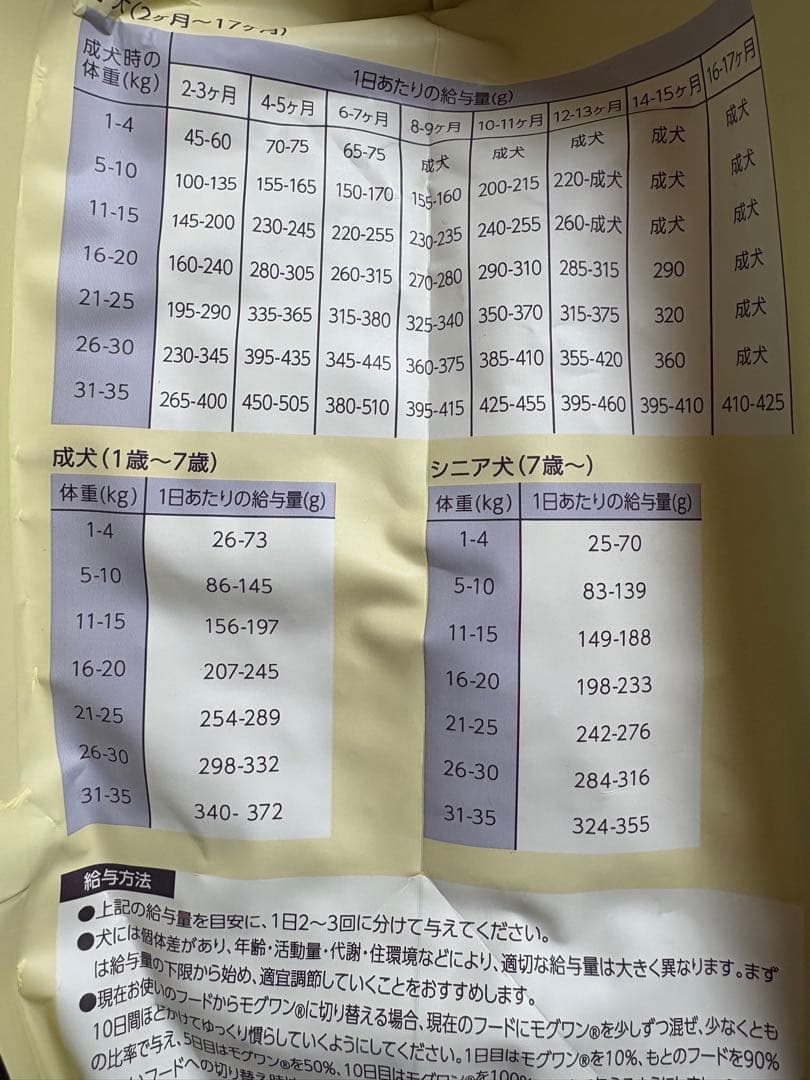 犬(2ヶ月〜17ヶ月)
成犬時の体重(kg) 1日あたりの給与量(g)
2-3ヶ月 4-5ヶ月 6-7ヶ月 8-9ヶ月 10-11ヶ月 12-13ヶ月 14-15ヶ月 16-17ヶ月
1-4 45-60 70-75 65-75 成犬 成犬 成犬 成犬 成犬
5-10 100-135 155-165 150-170 155-160 200-215 220-成犬 成犬 成犬
11-15 145-200 230-245 220-255 230-235 240-255 260-成犬 成犬 成犬
16-20 160-240 280-305 260-315 270-280 290-310 285-315 290 成犬
21-25 195-290 335-365 315-380 325-340 350-370 315-375 320 成犬
26-30 230-345 395-435 345-445 360-375 385-410 355-420 360 成犬
31-35 265-400 450-505 380-510 395-415 425-455 395-460 395-410 410-425
成犬(1歳〜7歳)
体重(kg) 1日あたりの給与量(g)
1-4 26-73
5-10 86-145
11-15 156-197
16-20 207-245
21-25 254-289
26-30 298-332
31-35 340- 372
シニア犬(7歳〜)
体重(kg) 1日あたりの給与量(g)
1-4 25-70
5-10 83-139
11-15 149-188
16-20 198-233
21-25 242-276
26-30 284-316
31-35 324-355
給与方法
●上記の給与量を目安に、1日2〜3回に分けて与えてください。
●犬には個体差があり、年齢・活動量・代謝・住環境などにより、適切な給与量は大きく異なります。まず
は給与量の下限から始め、適宜調節していくことをおすすめします。
●現在お使いのフードからモグワン®に切り替える場合、現在のフードにモグワン®を少しずつ混ぜ、少なくとも
10日間ほどかけてゆっくり慣らしていくようにしてください。1日目はモグワン®を10%、もとのフードを90%
の比率で与え、5日目はモグワン®を50%、10日目はモグワン®を100%
いフードへの切り替え時は